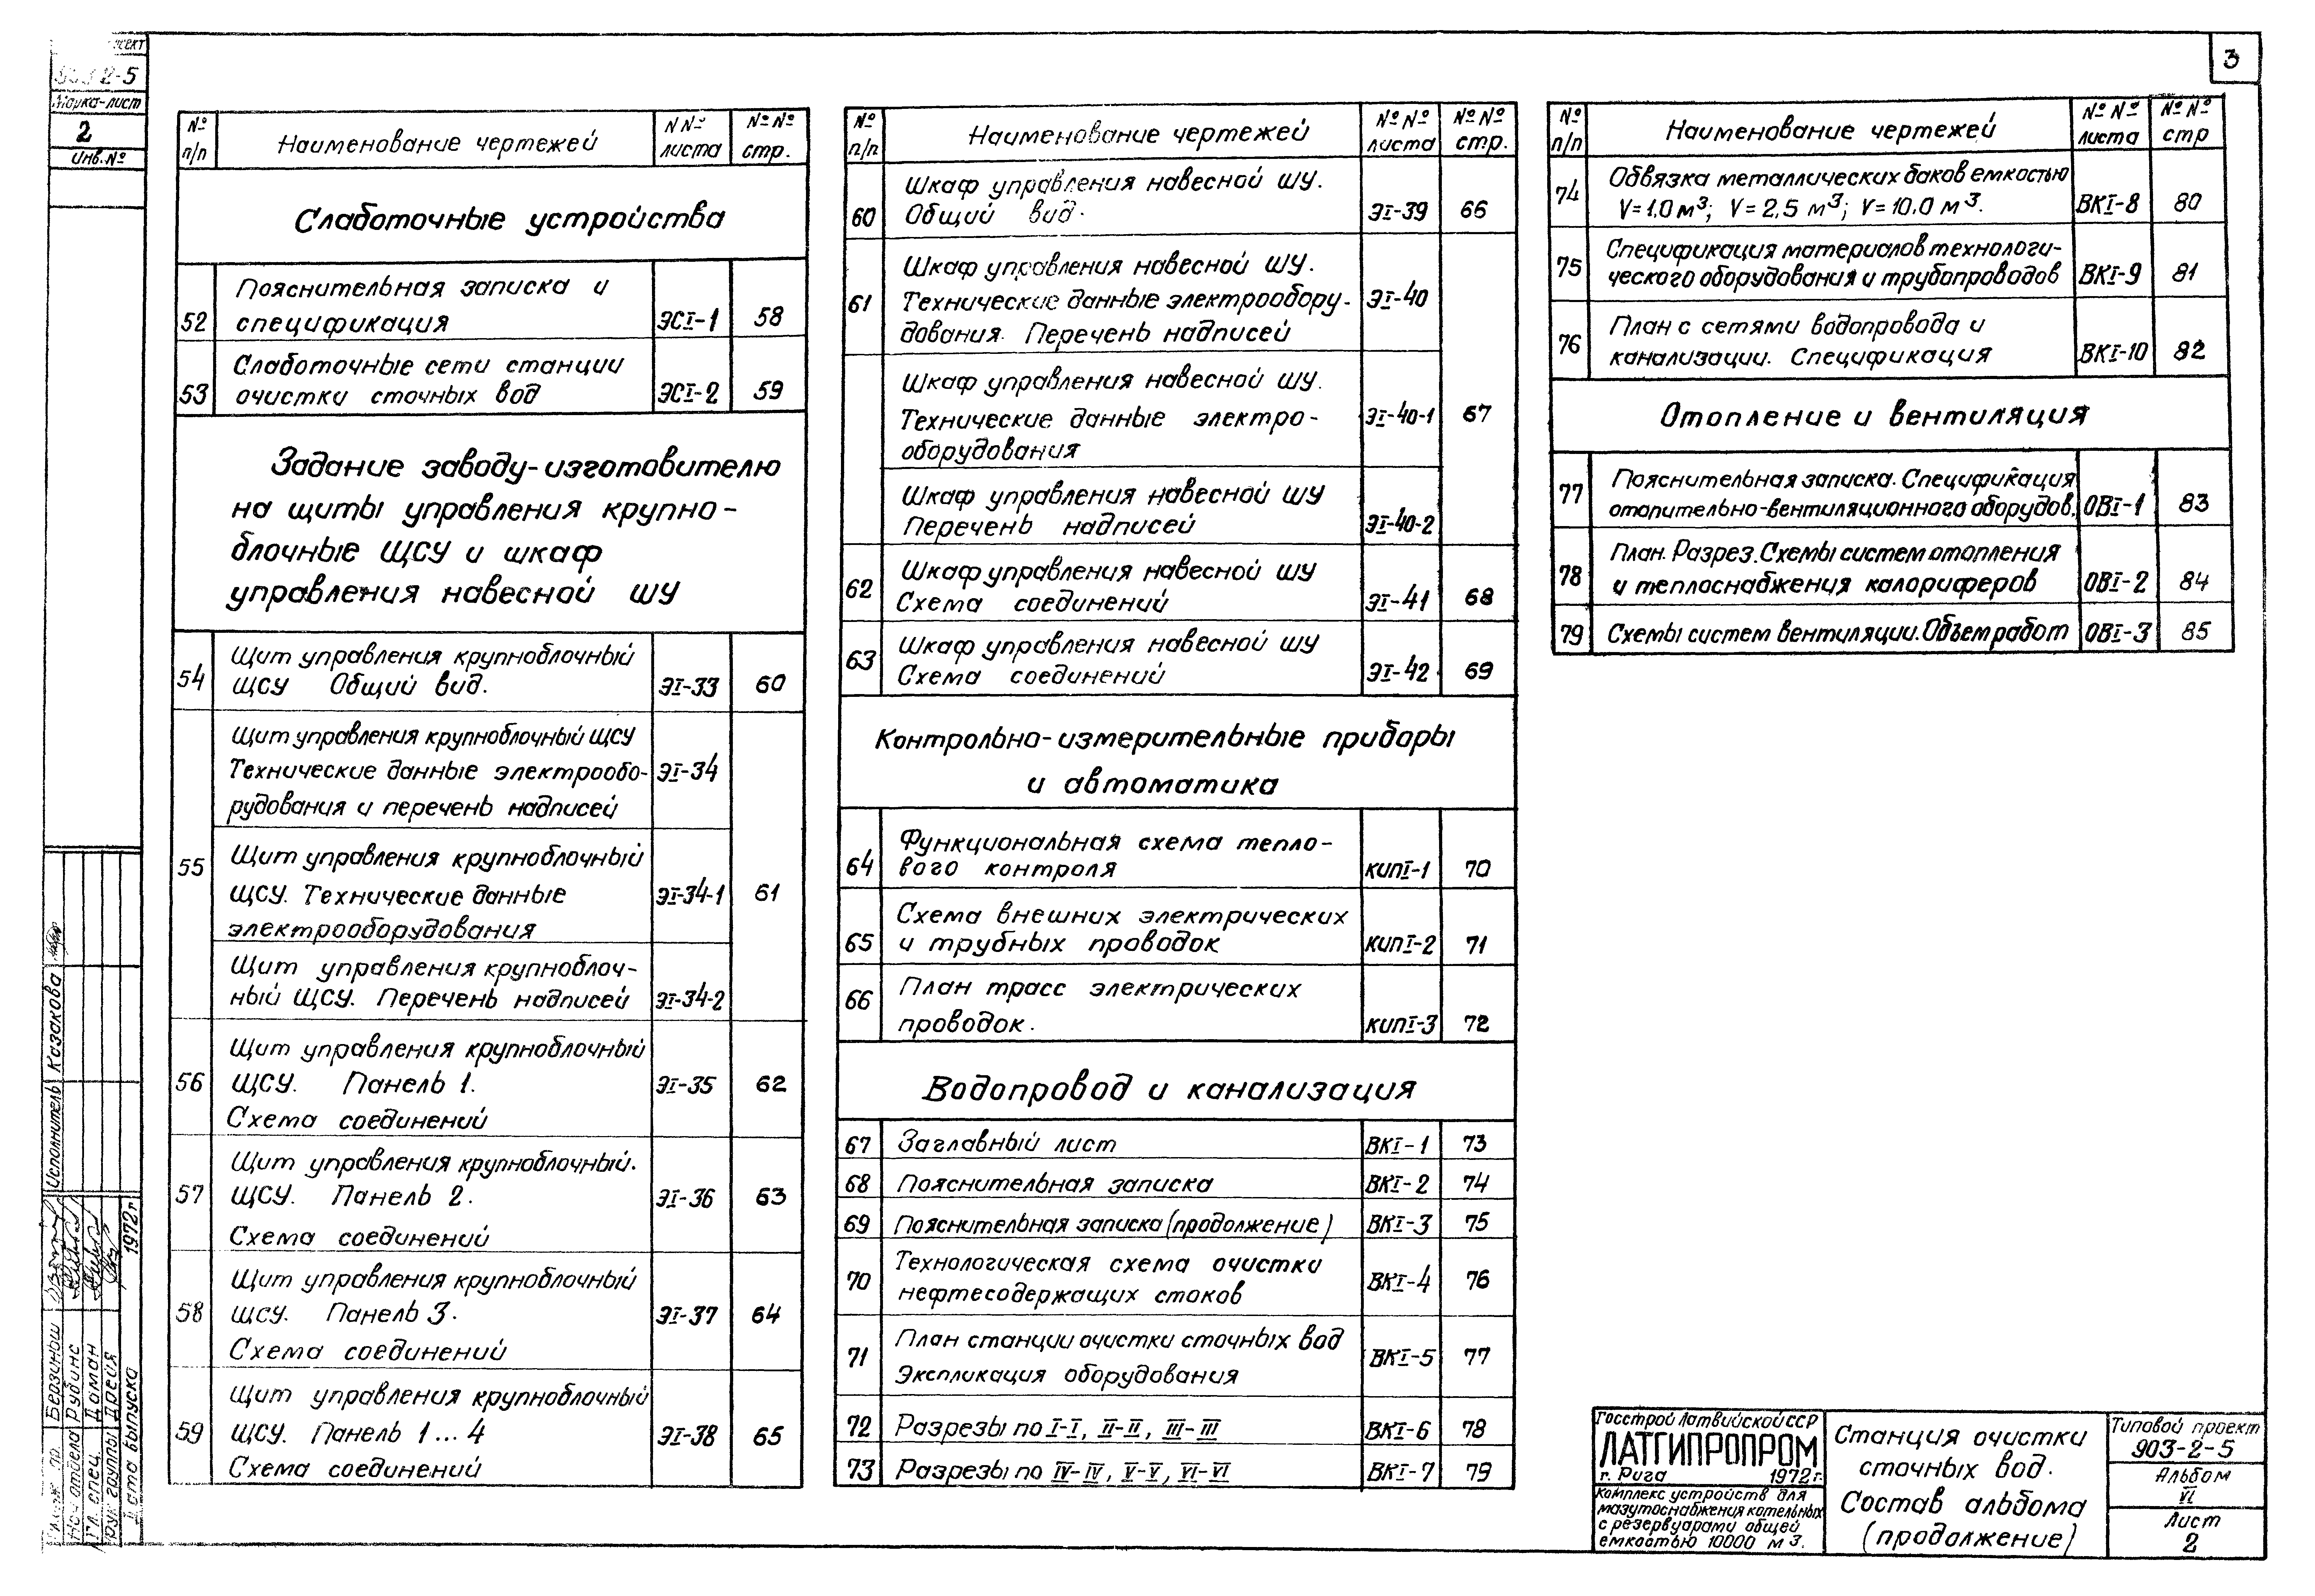 3
2-5
Марка-лист
2
Инв.№
№ п/п
Наименование чертежей
№№ листа
№№ стр.
Слаботочные устройства
52
Пояснительная записка и
спецификация
ЭСI-1
58
53
Слаботочные сети станции
очистки сточных вод
ЭСI-2
59
Задание заводу-изготовителю
на щиты управления крупно-
блочные ЩСУ и шкаф
управления навесной ШУ
54
Щит управления крупноблочный
ЩСУ Общий вид.
ЭI-33
60
55
Щит управления крупноблочный ЩСУ
Технические данные электрообо-
рудования и перечень надписей
ЭI-34
Щит управления крупноблочный
ЩСУ. Технические данные
электрооборудования
ЭI-34-1
61
Щит управления крупноблоч-
ный ЩСУ. Перечень надписей
ЭI-34-2
56
Щит управления крупноблочный
ЩСУ. Панель 1.
Схема соединений
ЭI-35
62
57
Щит управления крупноблочный.
ЩСУ. Панель 2.
Схема соединений
ЭI-36
63
58
Щит управления крупноблочный
ЩСУ. Панель 3.
Схема соединений
ЭI-37
64
59
Щит управления крупноблочный
ЩСУ. Панель 1...4
Схема соединений
ЭI-38
65
№ п/п
Наименование чертежей
№№ листа
№№ стр.
60
Шкаф управления навесной ШУ.
Общий вид.
ЭI-39
66
61
Шкаф управления навесной ШУ.
Технические данные электрообору-
дования. Перечень надписей
ЭI-40
Шкаф управления навесной ШУ.
Технические данные электро-
оборудования
ЭI-40-1
67
Шкаф управления навесной ШУ
Перечень надписей
ЭI-40-2
62
Шкаф управления навесной ШУ
Схема соединений
ЭI-41
68
63
Шкаф управления навесной ШУ
Схема соединений
ЭI-42
69
Контрольно-измерительные приборы
и автоматика
64
Функциональная схема тепло-
вого контроля
КИПI-1
70
65
Схема внешних электрических
и трубных проводок
КИПI-2
71
66
План трасс электрических
проводок.
КИПI-3
72
Водопровод и канализация
67
Заглавный лист
ВКI-1
73
68
Пояснительная записка
ВКI-2
74
69
Пояснительная записка (продолжение)
ВКI-3
75
70
Технологическая схема очистки
нефтесодержащих стоков
ВКI-4
76
71
План станции очистки сточных вод
Экспликация оборудования
ВКI-5
77
72
Разрезы по I-I, II-II, III-III
ВКI-6
78
73
Разрезы по IV-IV, V-V, VI-VI
ВКI-7
79
№ п/п
Наименование чертежей
№№ листа
№№ стр
74
Обвязка металлических баков емкостью
V=1,0 м³; V=2,5 м³; V=10,0 м³.
ВКI-8
80
75
Спецификация материалов технологи-
ческого оборудования и трубопроводов
ВКI-9
81
76
План с сетями водопровода и
канализации. Спецификация
ВКI-10
82
Отопление и вентиляция
77
Пояснительная записка. Спецификация
отопительно-вентиляционного оборудов.
ОВI-1
83
78
План. Разрез. Схемы систем отопления
и теплоснабжения калориферов
ОВI-2
84
79
Схемы систем вентиляции. Объем работ
ОВI-3
85
Исполнитель Казакова
Берзинош
Нач отдела Рубинс
Гл. спец. Доман
Рук группы Дрейя
Дата выпуска 1972 г.
Госстрой Латвийской ССР
ЛАТГИПРОПРОМ
г. Рига 1972 г.
Комплекс устройств для
мазутоснабжения котельных
с резервуарами общей
емкостью 10000 м3.
Станция очистки
сточных вод.
Состав альбома
(продолжение)
Типовой проект
903-2-5
Альбом
VI
Лист
2